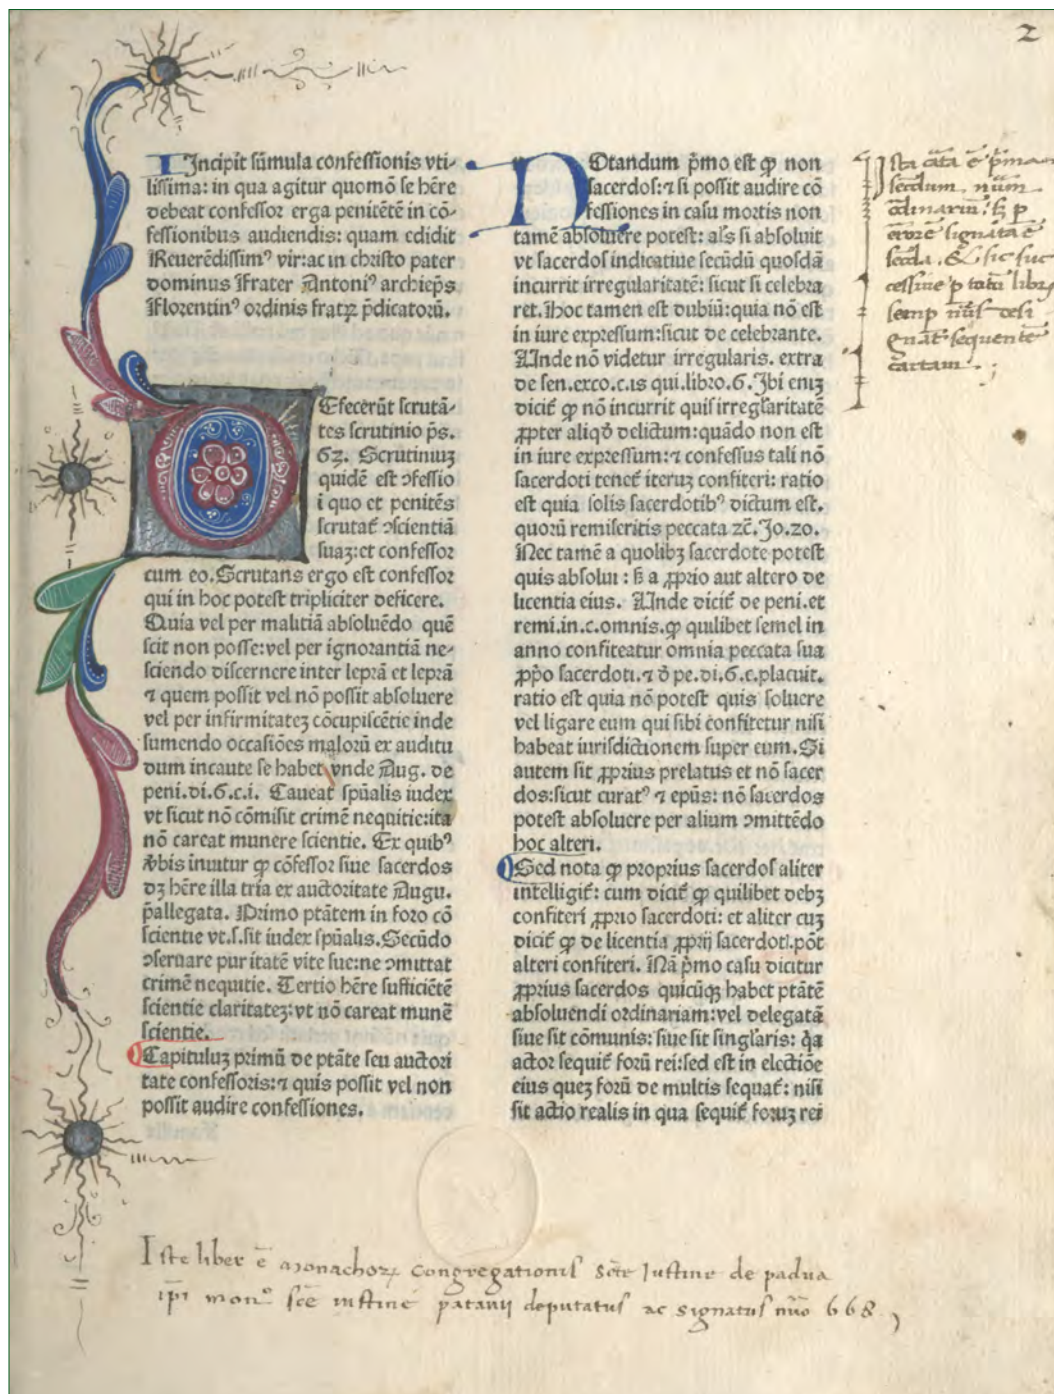 2
Incipit sūmula confessionis vti-
lissima: in qua agitur quomō se hēre
debeat confessor erga penitētē in cō-
fessionibus audiendis: quam edidit
Reuerēdissimꝰ vir: ac in christo pater
dominus frater Antoniꝰ archiep̄s
florentinꝰ ordinis fratꝝ p̄dicatorū.
DEfecerūt scrutā-
tes scrutinio p̄s.
63. Scrutiniuꝫ
quidē est ↄfessio
i quo et penitēs
scrutat̄ ↄscientiā
suaꝫ: et confessor
cum eo. Scrutans ergo est confessor
qui in hoc potest tripliciter deficere.
Quia vel per malitiā absoluēdo quē
scit non posse: vel per ignorantiā ne-
sciendo discernere inter leprā et leprā
⁊ quem possit vel nō possit absoluere
vel per infirmitateꝫ cōcupiscētie inde
sumendo occasiōes malorū ex auditu
dum incaute se habet vnde Aug. de
peni.di.6.c.i. Caueat sp̄ualis iudex
vt sicut nō cōmisit crimē nequitie: ita
nō careat munere scientie. Ex quibꝰ
v̄bis inuitur ꝙ cōfessor siue sacerdos
dꝫ hēre illa tria ex auctoritate Augu.
p̄allegata. Primo ptātem in foro cō
scientie vt.s.sit iudex sp̄ualis. Secūdo
ↄseruare pur itatē vite sue: ne ↄmittat
crimē nequitie. Tertio hēre sufficiētē
scientie claritateꝫ: vt nō careat munē
scientie.
Capituluꝫ primū de ptāte seu auctori
tate confessoris: ⁊ quis possit vel non
possit audire confessiones.
NOtandum p̄mo est ꝙ non
sacerdos: ⁊ si possit audire cō
fessiones in casu mortis non
tamē absoluere potest: al's si absoluit
vt sacerdos indicatiue secūdū quosdā
incurrit irregularitatē: sicut si celebra
ret. Hoc tamen est dubiū: quia nō est
in iure expressum: sicut de celebrante.
Unde nō videtur irregularis. extra
de sen.exco.c.is qui.libro.6. Ibi eniꝫ
dicit̄ ꝙ nō incurrit quis irregl'aritatē
ꝓpter aliqd̄ delictum: quādo non est
in iure expressum: ⁊ confessus tali nō
sacerdoti tenet̄ iteruꝫ confiteri: ratio
est quia solis sacerdotibꝰ dictum est.
quorū remiseritis peccata ⁊c̄. Jo.20.
Nec tamē a quolibꝫ sacerdote potest
quis absolui: sꝫ a ꝓprio aut altero de
licentia eius. Unde dicit̄ de peni.et
remi.in.c.omnis.ꝙ quilibet semel in
anno confiteatur omnia peccata sua
ꝓp̄o sacerdoti.⁊ d̄ pe.di.6.c.placuit.
ratio est quia nō potest quis soluere
vel ligare eum qui sibi confitetur nisi
habeat iurisdictionem super eum. Si
autem sit ꝓprius prelatus et nō sacer
dos: sicut curatꝰ ⁊ ep̄us: nō sacerdos
potest absoluere per alium ↄmittēdo
hoc alteri.
Sed nota ꝙ proprius sacerdos aliter
intelligit̄: cum dicit̄ ꝙ quilibet debꝫ
confiteri ꝓprio sacerdoti: et aliter cuꝫ
dicit̄ ꝙ de licentia ꝓprij sacerdoti.pōt
alteri confiteri. Nā p̄mo casu dicitur
ꝓprius sacerdos quicūqꝫ habet ptātē
absoluendi ordinariam: vel delegatā
siue sit cōmunis: siue sit singl'aris: q̄a
actor sequit̄ forū rei: sed est in electiōe
eius queꝫ forū de multis sequat̄: nisi
sit actio realis in qua sequit̄ foruꝫ rei
Ista cāta ē p̄ma
secūdum nūm
ordinariū: sꝫ p
errorē signata ē
secūda. Et sic suc
cessiue p totū librū
semp nūs desi
gnat sequentē
cartam.
Iste liber ē monachoꝝ congregationis Scte Iustine de padua
ip̄i monº scē iustine patauij deputatus ac signatus nūo 668